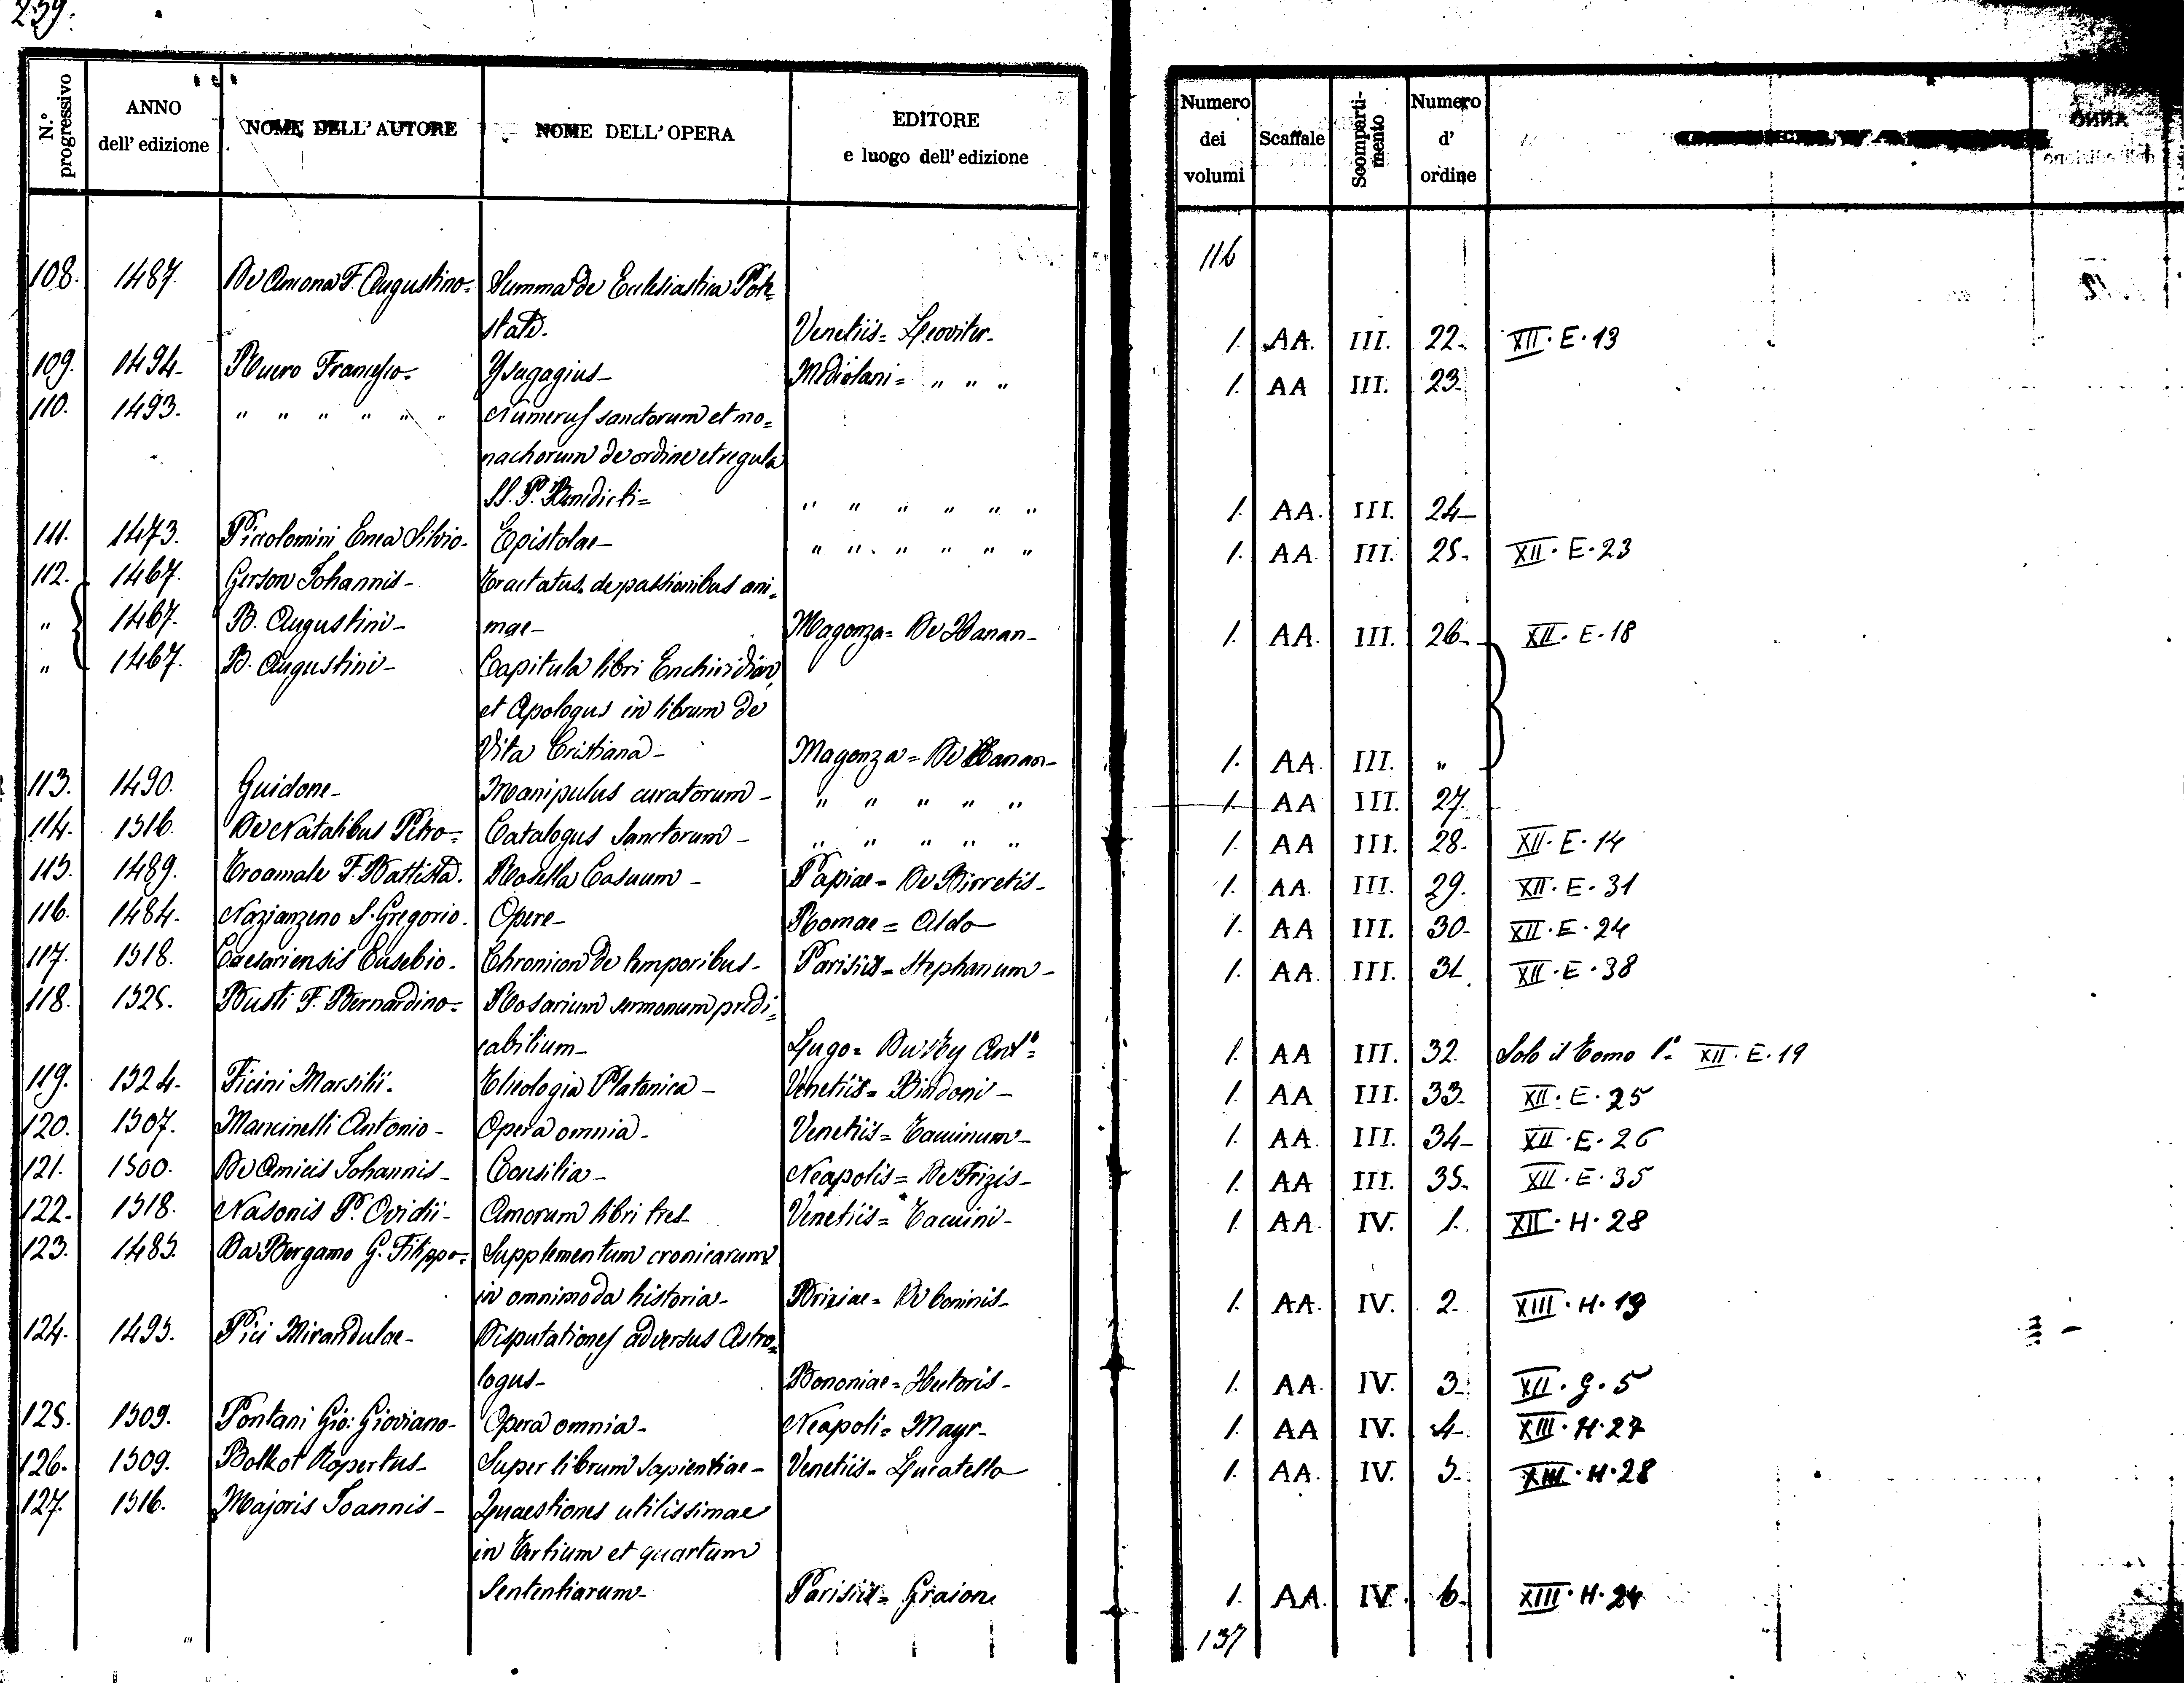 239.
N.º progressivo | ANNO dell' edizione | NOME DELL' AUTORE | NOME DELL' OPERA | EDITORE e luogo dell' edizione | Numero dei volumi | Scaffale | Scomparti-mento | Numero d' ordine
116
108. 1487. De Ancona F. Augustino= Summa de Ecclesiastica Pote=
state. Venetiis= 1. AA. III. 22. XII·E·13
109. 1494- Puero Francesco= Ysagagius- Mediolani= " " " 1. AA III. 23.
110. 1493. " " " " " " Numerus sanctorum et mo=
nachorum de ordine et regula
SS. P. Benedicti= " " " " " " 1. AA. III. 24-
111. 1473. Piccolomini Enea Silvio- Epistolae- " " " " " " 1. AA. III. 25. XII·E·23
112. 1467. Gerson Johannis- Tractatus de passionibus ani=
" 1467. B. Augustini- mae- Magonza= De Hanan- 1. AA. III. 26- XII·E·18
" 1467. B. Augustini- Capitula libri Enchiridion,
et Apologus in librum de
Vita Cristiana- Magonza= De Hanan- 1. AA III. "
113. 1490. Guidone- Manipulus curatorum- " " " " " 1. AA III. 27.
114. 1516. De Natalibus Petro= Catalogus Sanctorum- " " " " " 1. AA III. 28- XII·E·14
115. 1489. Troamale F. Battista. Rosella Casuum- Papiae= De Birretis- 1. AA. III. 29. XII·E·31
116. 1484. Nazianzeno S. Gregorio. Opere- Romae= Aldo 1. AA III. 30- XII·E·24
117. 1518. Caesariensis Eusebio- Chronicon de temporibus- Parisiis= Stephanum- 1. AA. III. 31. XII·E·38
118. 1525. Busti F. Bernardino= Rosarium sermonum predi=
cabilium- Lugo= Ant.º= 1. AA III. 32. Solo il Tomo 1.º XII·E·19
119. 1524- Ficini Marsilii. Theologia Platonica- Venetiis= Bindoni- 1. AA III. 33- XII·E·25
120. 1507. Mancinelli Antonio- Opera omnia- Venetiis= Tacuinum- 1. AA. III. 34- XII·E·26
121. 1500. De Amicis Johannis- Consilia- Neapolis= De Frizis- 1. AA III. 35- XII·E·35
122. 1518. Nasonis P. Ovidii- Amorum libri tres- Venetiis= Tacuini- 1. AA. IV. 1. XII·H·28
123. 1485. Da Bergamo G. Filippo= Supplementum cronicarum
in omnimoda historia- Brixiae= De Boninis- 1. AA. IV. 2. XIII·H·19
124. 1495. Pici Mirandulae- Disputationes adversus Astro=
logus- Bononiae= Hectoris- 1. AA. IV. 3. XII·G·5
125. 1509. Pontani Gio: Gioviano- Opera omnia- Neapoli= Mayr- 1. AA IV. 4- XIII·H·27
126. 1509. Bolkot Ropertus- Super librum Sapientiae- Venetiis= Lucatello 1. AA. IV. 5. XIII·H·28
127. 1516. Majoris Joannis- Quaestiones utilissimae
in Tertium et quartum
Sententiarum- Parisiis= Graion 1. AA. IV. 6. XIII·H·24
137